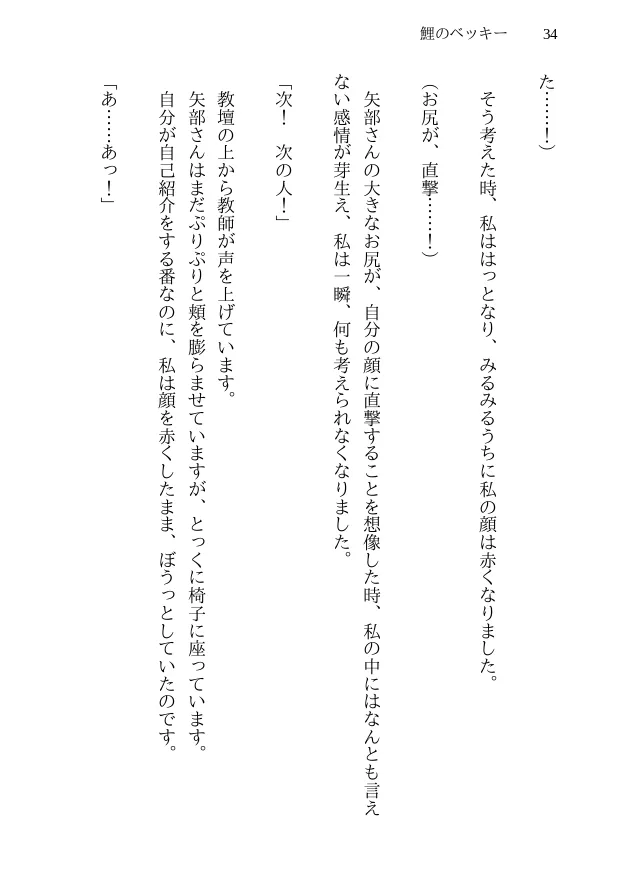 鯉のベッキー 34
た………！）
そう考えた時、私ははっとなり、みるみるうちに私の顔は赤くなりました。
（お尻が、直撃………！）
矢部さんの大きなお尻が、自分の顔に直撃することを想像した時、私の中にはなんとも言え
ない感情が芽生え、私は一瞬、何も考えられなくなりました。
「次！　次の人！」
教壇の上から教師が声を上げています。
矢部さんはまだぷりぷりと頬を膨らませていますが、とっくに椅子に座っています。
自分が自己紹介をする番なのに、私は顔を赤くしたまま、ぼうっとしていたのです。
「あ……あっ！」